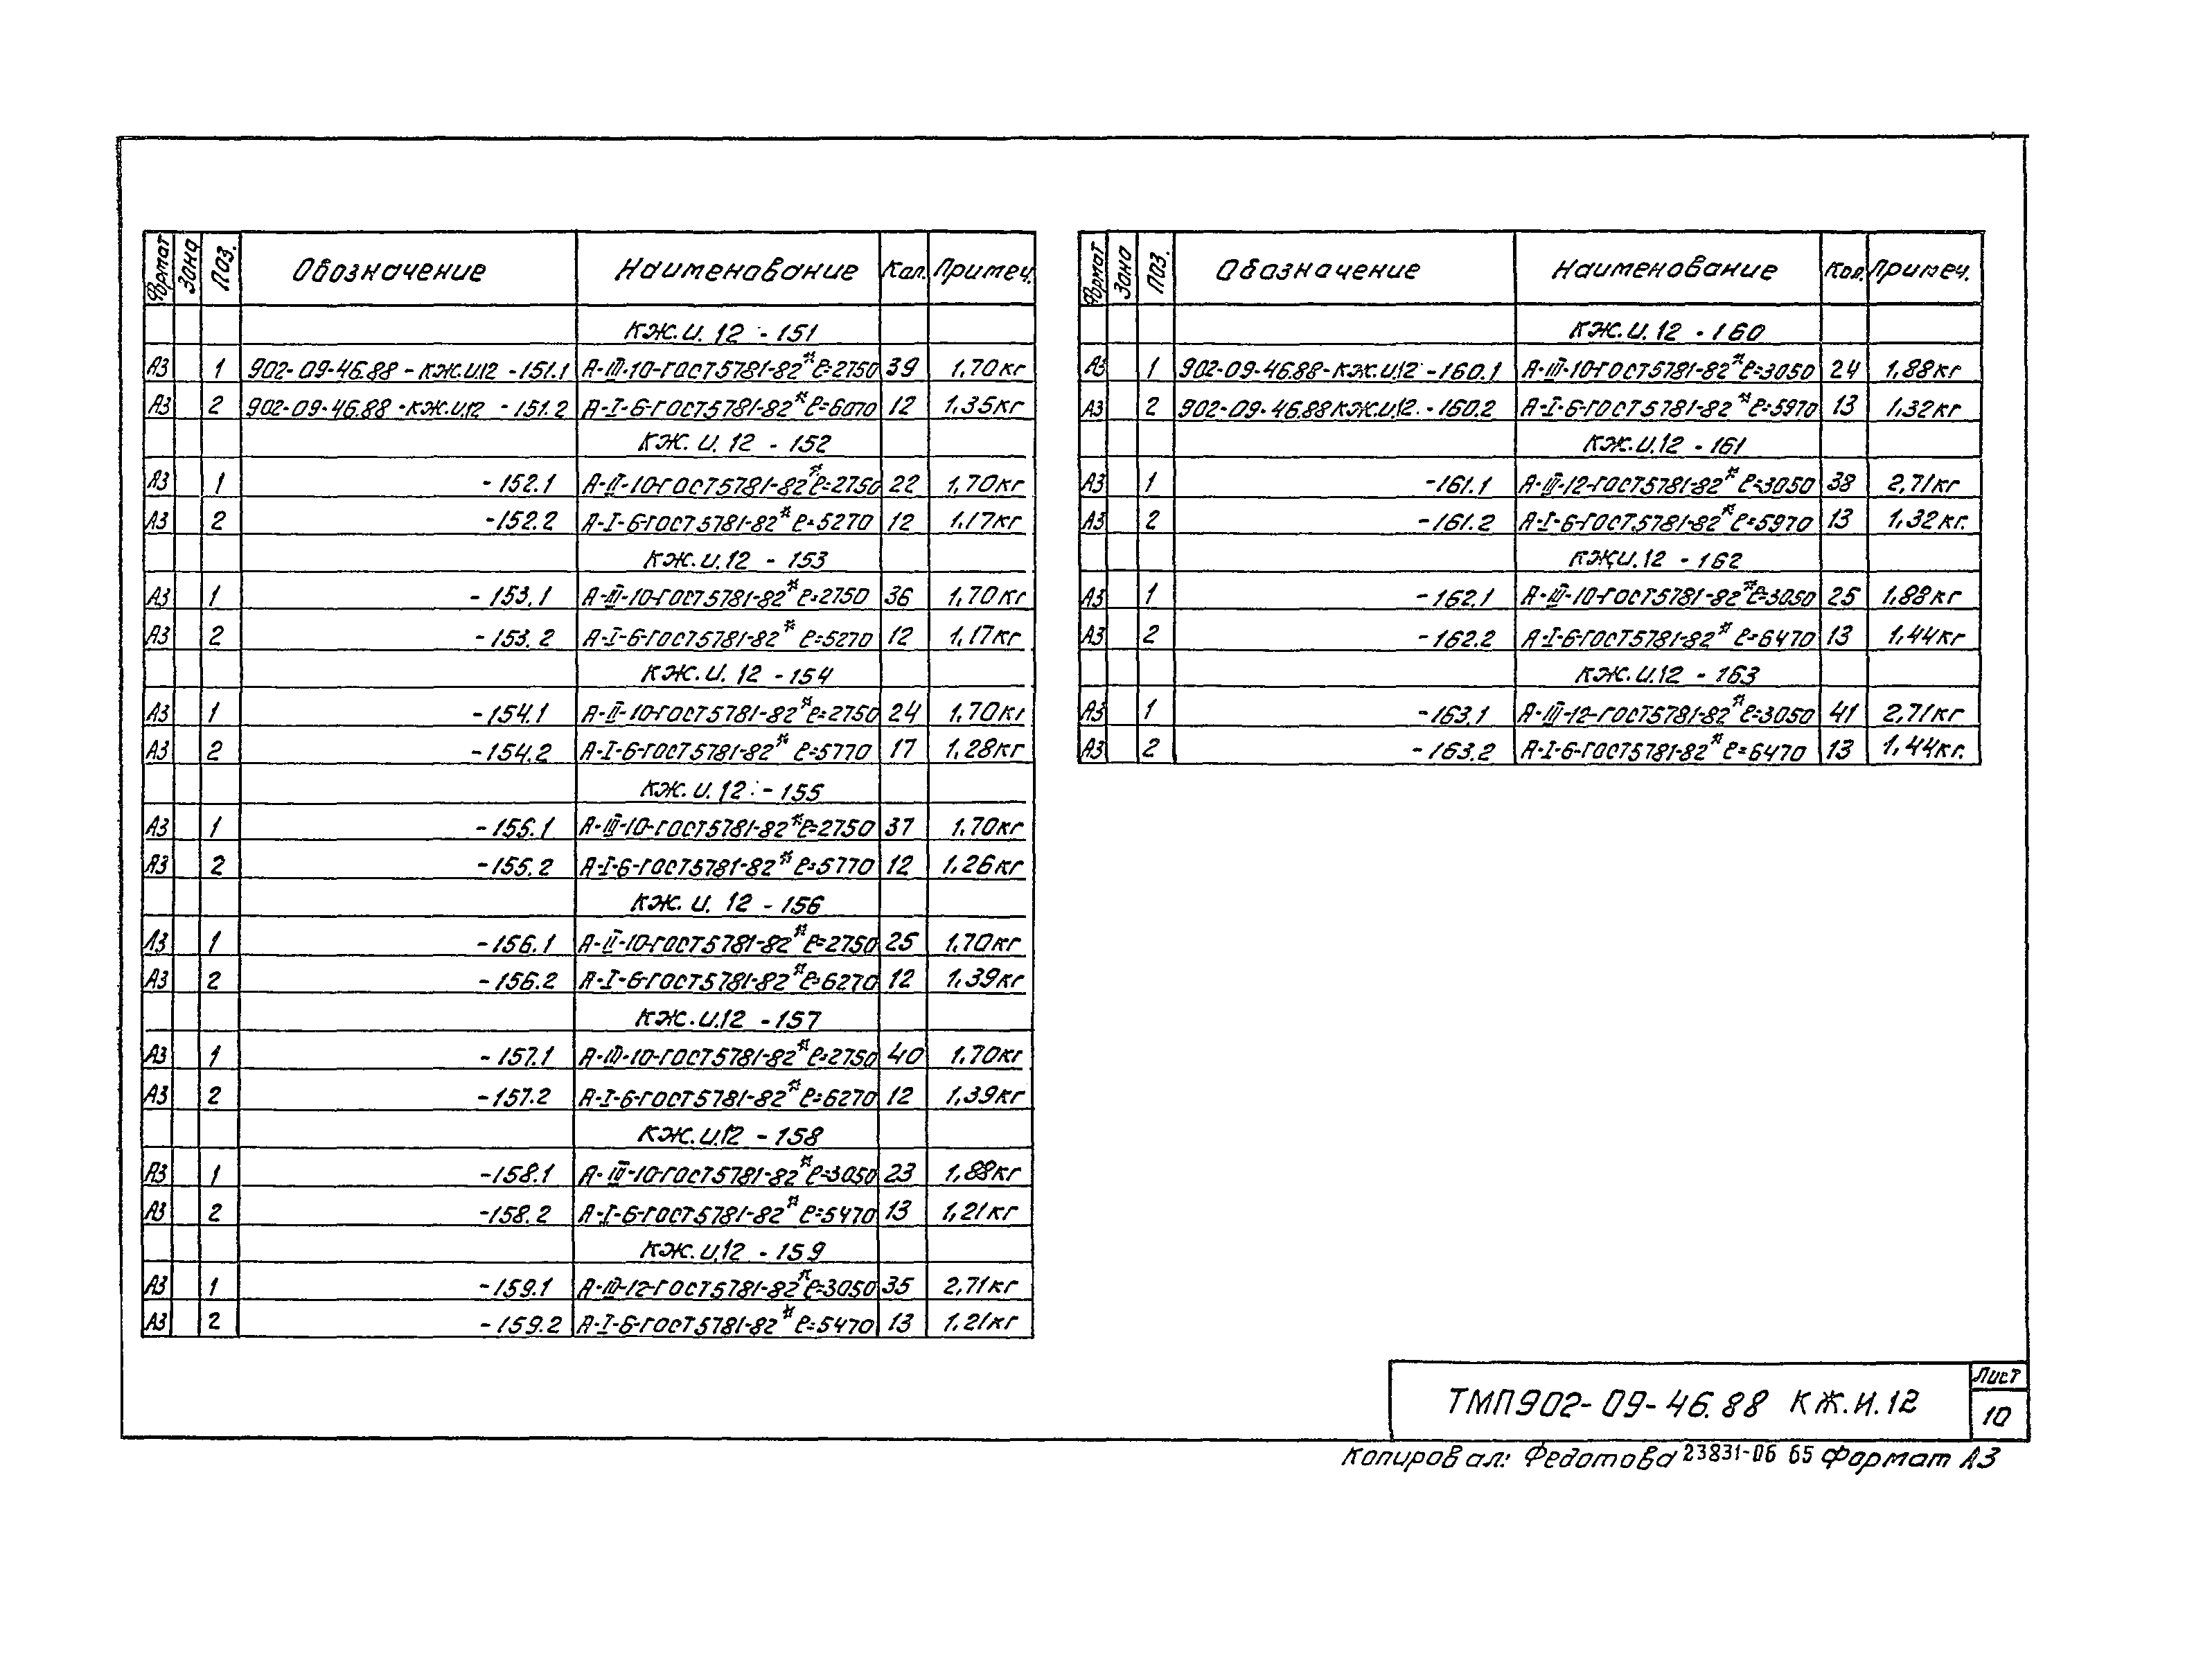 Формат Зона Поз. Обозначение Наименование Кол. Примеч.
КЖ.И. 12 - 151
А3 1 902-09-46.88 - КЖ.И.12 - 151.1 А-III-10-ГОСТ5781-82* ℓ=2750 39 1,70кг
А3 2 902-09-46.88 - КЖ.И.12 - 151.2 А-I-6-ГОСТ5781-82* ℓ=6070 12 1,35кг
КЖ.И. 12 - 152
А3 1 - 152.1 А-II-10-ГОСТ5781-82* ℓ=2750 22 1,70кг
А3 2 -152.2 А-I-6-ГОСТ5781-82* ℓ=5270 12 1,17кг
КЖ.И.12 - 153
А3 1 - 153.1 А-III-10-ГОСТ5781-82* ℓ=2750 36 1,70кг
А3 2 - 153.2 А-I-6-ГОСТ5781-82* ℓ=5270 12 1,17кг
КЖ.И. 12 - 154
А3 1 -154.1 А-II-10-ГОСТ5781-82* ℓ=2750 24 1,70кг
А3 2 -154.2 А-I-6-ГОСТ5781-82* ℓ=5770 17 1,28кг
КЖ.И. 12 - 155
А3 1 -155.1 А-III-10-ГОСТ5781-82* ℓ=2750 37 1,70кг
А3 2 -155.2 А-I-6-ГОСТ5781-82* ℓ=5770 12 1,26кг
КЖ.И. 12 - 156
А3 1 -156.1 А-II-10-ГОСТ5781-82* ℓ=2750 25 1,70кг
А3 2 -156.2 А-I-6-ГОСТ5781-82* ℓ=6270 12 1,39кг
КЖ.И.12 - 157
А3 1 - 157.1 А-III-10-ГОСТ5781-82* ℓ=2750 40 1,70кг
А3 2 -157.2 А-I-6-ГОСТ5781-82* ℓ=6270 12 1,39кг
КЖ.И.12 - 158
А3 1 -158.1 А-III-10-ГОСТ5781-82* ℓ=3050 23 1,88кг
А3 2 -158.2 А-I-6-ГОСТ5781-82* ℓ=5470 13 1,21кг
КЖ.И.12 - 159
А3 1 -159.1 А-III-12-ГОСТ5781-82* ℓ=3050 35 2,71кг
А3 2 -159.2 А-I-6-ГОСТ5781-82* ℓ=5470 13 1,21кг
Формат Зона Поз. Обозначение Наименование Кол. Примеч.
КЖ.И.12 - 160
А3 1 902-09-46.88-КЖ.И.12 - 160.1 А-III-10-ГОСТ5781-82* ℓ=3050 24 1,88кг
А3 2 902-09-46.88 КЖ.И.12 - 160.2 А-I-6-ГОСТ5781-82* ℓ=5970 13 1,32кг
КЖ.И.12 - 161
А3 1 -161.1 А-III-12-ГОСТ5781-82* ℓ=3050 38 2,71кг
А3 2 -161.2 А-I-6-ГОСТ5781-82* ℓ=5970 13 1,32кг.
КЖ.И.12 - 162
А3 1 -162.1 А-III-10-ГОСТ5781-82* ℓ=3050 25 1,88кг
А3 2 -162.2 А-I-6-ГОСТ5781-82* ℓ=6470 13 1,44кг
КЖ.И.12 - 163
А3 1 -163.1 А-III-12-ГОСТ5781-82* ℓ=3050 41 2,71кг
А3 2 -163.2 А-I-6-ГОСТ5781-82* ℓ=6470 13 1,44кг.
ТМП902-09-46.88 КЖ.И.12
Лист
10
Копировал: Федотова 23831-06 65 Формат А3